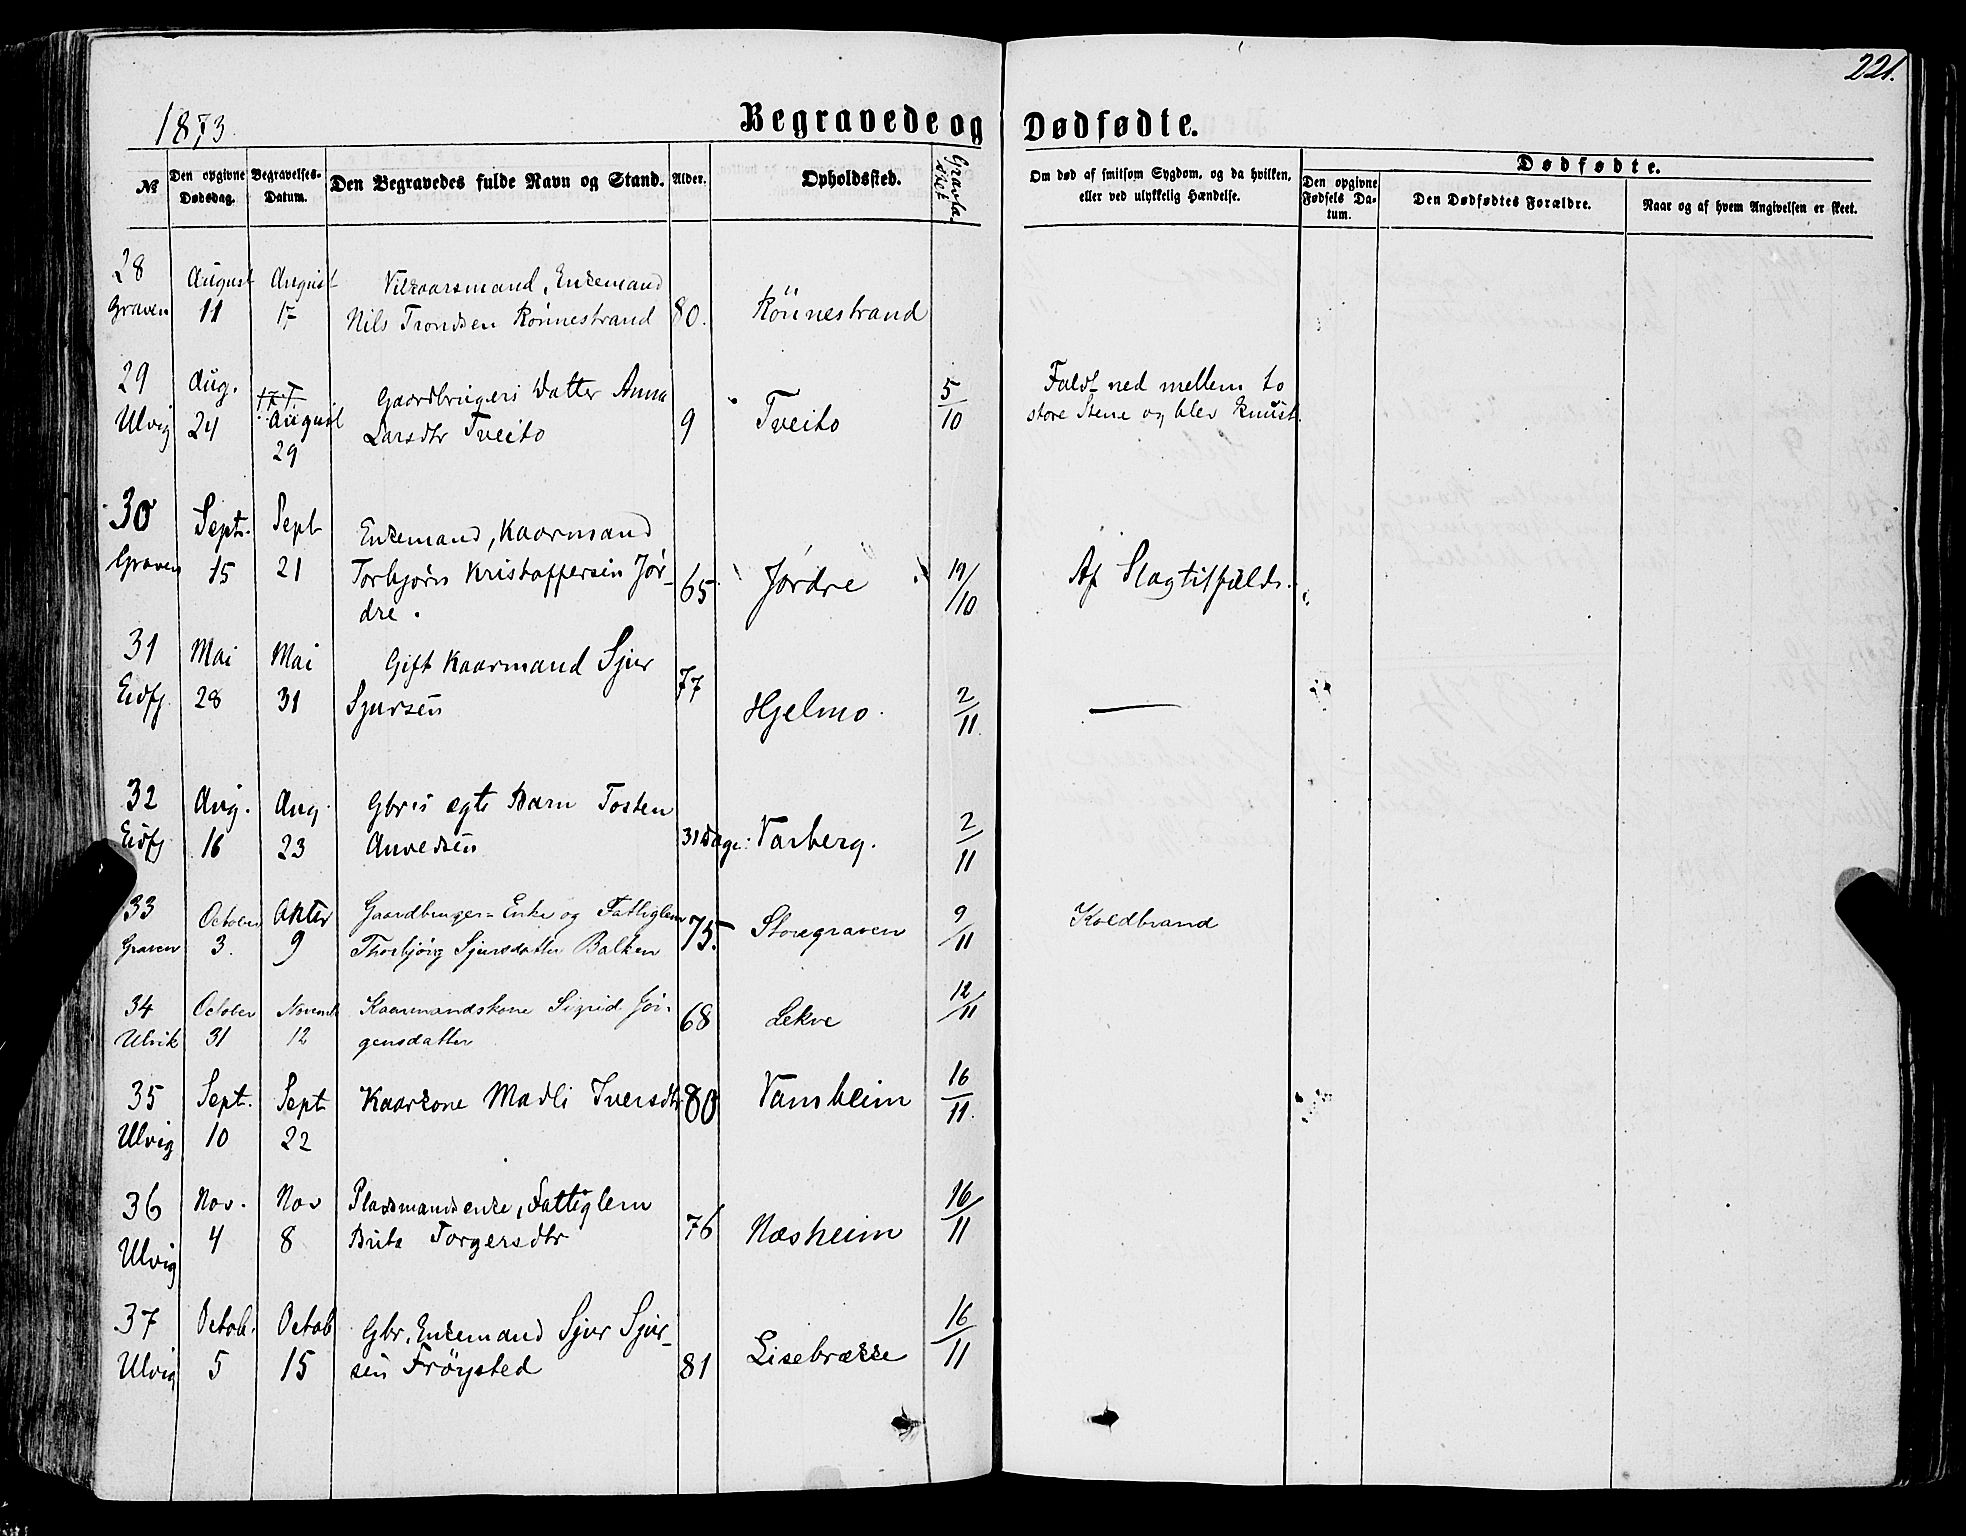 221.
1873.
Begravede og Dødfødte.
№
Den opgivne Dødsdag.
Begravelses-Datum.
Den Begravedes fulde Navn og Stand.
Alder.
Opholdssted.
Om død af smitsom Sygdom, og da hvilken, eller ved ulykkelig Hændelse.
Dødfødte.
Den opgivne Fødsels Datum.
Den Dødfødtes Forældre.
Naar og af hvem Angivelsen er skeet.
28 August August Vilkaarsmand, Enkemand
Graven 11 17 Nils Trondsen Rönnestrand 80. Rönnestrand
29 Aug. August Gaardbrugers Datter Anna 5/10 Faldt ned mellem to
Ulvig 24 29 Larsdtr Tveito 9 Tveito store Stene og blev knust.
30 Sept. Sept Enkemand, Kaarmand
Graven 15 21 Torbjørn Kristoffersen Jør- 65 Jørdre 19/10 Af Slagtilfælde.
dre.
31 Mai Mai Gift Kaarmand Sjur 77
Eidfj. 28 31 Sjursen Hjelmo. 2/11 —
32 Aug. Aug. Gbrs egte Barn Tosten
Eidfj 16 23 31 Dage: Varberg. 2/11
33 October Gaardbruger-Enke og Fattiglem
Graven 3. 9 Thorbjörg Sjursdatter Balken 75. Storegraven 9/11 Koldbrand
34 October Novemb Kaarmandskone Sigrid Jör-
Ulvik 31 12 gensdatter 68 Lekve 12/11
35 Sept. Sept Kaarkone Madli Iversdtr 80 Vamheim 16/11.
Ulvig 10 22
36 Nov. Nov Pladsmandsenke, Fattiglem
Ulvig 4 8 Brita Torgersdtr 76 Næsheim 16/11
37 Octob. Octob Gbr. Enkemand Sjur Sjur-
Ulvig 5 15 sen Fröysted 81 Lisebrække 16/11